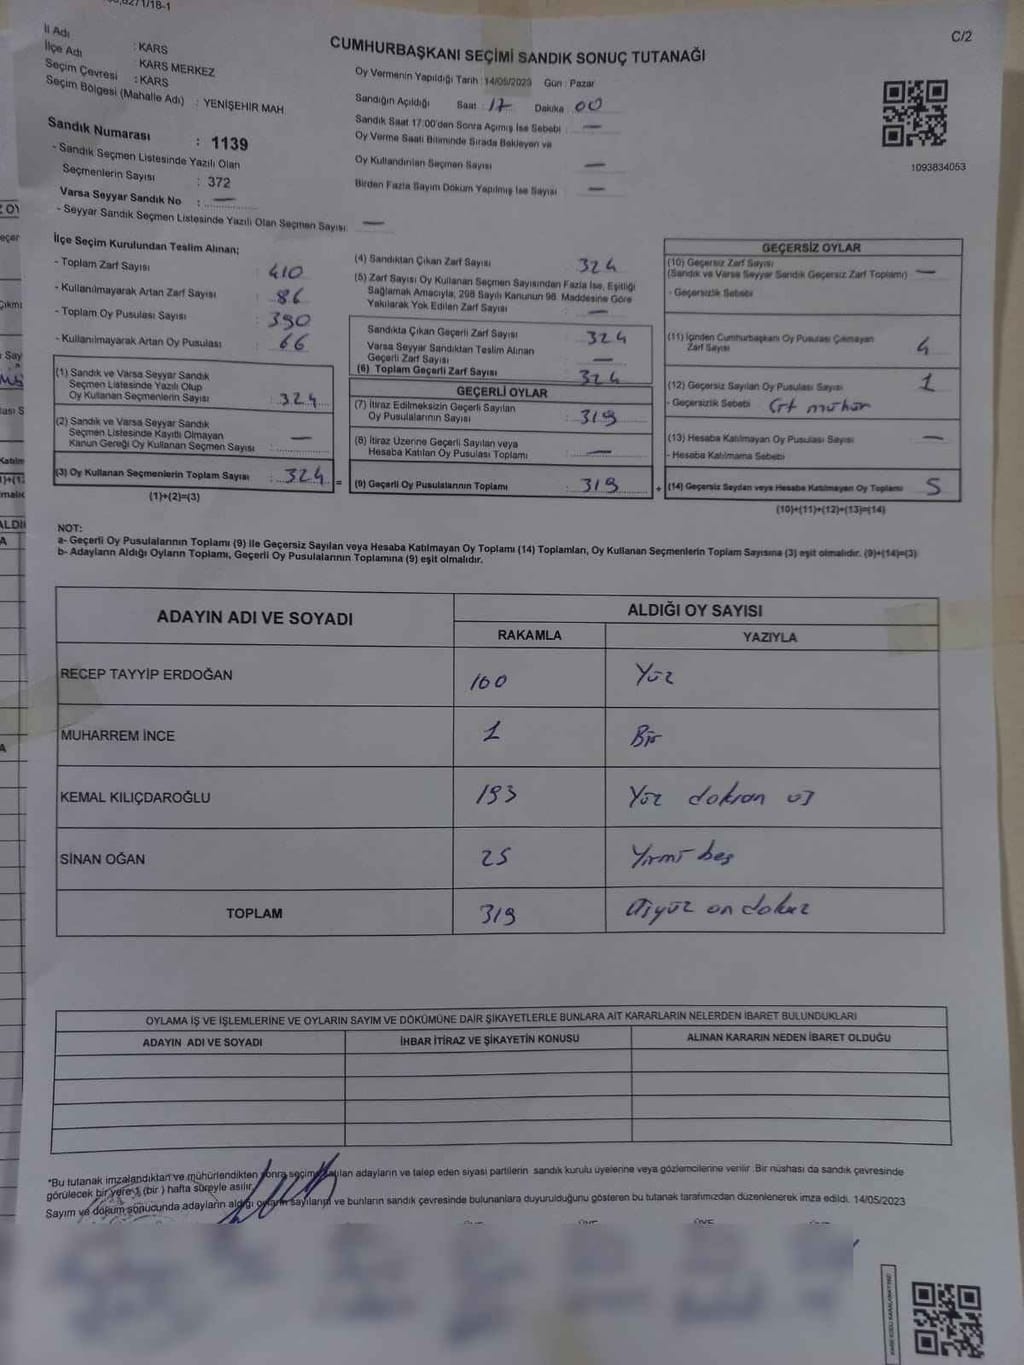 C/2
CUMHURBAŞKANI SEÇİMİ SANDIK SONUÇ TUTANAĞI
İl Adı : KARS
İlçe Adı : KARS MERKEZ
Seçim Çevresi : KARS
Seçim Bölgesi (Mahalle Adı) : YENİŞEHİR MAH
Sandık Numarası : 1139
- Sandık Seçmen Listesinde Yazılı Olan
Seçmenlerin Sayısı : 372
Varsa Seyyar Sandık No : —
- Seyyar Sandık Seçmen Listesinde Yazılı Olan Seçmen Sayısı: —
Oy Vermenin Yapıldığı Tarih : 14/05/2023 Gün : Pazar
Sandığın Açıldığı Saat : 17 Dakika : 00
Sandık Saat 17:00'den Sonra Açımış İse Sebebi : —
Oy Verme Saati Bitiminde Sırada Bekleyen ve
Oy Kullandırılan Seçmen Sayısı —
Birden Fazla Sayım Döküm Yapılmış İse Sayısı —
1093834053
İlçe Seçim Kurulundan Teslim Alınan;
- Toplam Zarf Sayısı : 410
- Kullanılmayarak Artan Zarf Sayısı : 86
- Toplam Oy Pusulası Sayısı : 390
- Kullanılmayarak Artan Oy Pusulası : 66
(1) Sandık ve Varsa Seyyar Sandık
Seçmen Listesinde Yazılı Olup
Oy Kullanan Seçmenlerin Sayısı : 324
(2) Sandık ve Varsa Seyyar Sandık
Seçmen Listesinde Kayıtlı Olmayan
Kanun Gereği Oy Kullanan Seçmen Sayısı : —
(3) Oy Kullanan Seçmenlerin Toplam Sayısı : 324 =
(1)+(2)=(3)
(4) Sandıktan Çıkan Zarf Sayısı 324
(5) Zarf Sayısı Oy Kullanan Seçmen Sayısından Fazla İse, Eşitliği
Sağlamak Amacıyla, 298 Sayılı Kanunun 98. Maddesine Göre
Yakılarak Yok Edilen Zarf Sayısı : —
Sandıkta Çıkan Geçerli Zarf Sayısı : 324
Varsa Seyyar Sandıktan Teslim Alınan
Geçerli Zarf Sayısı : —
(6) Toplam Geçerli Zarf Sayısı : 324
GEÇERLİ OYLAR
(7) İtiraz Edilmeksizin Geçerli Sayılan
Oy Pusulalarının Sayısı : 319
(8) İtiraz Üzerine Geçerli Sayılan veya
Hesaba Katılan Oy Pusulası Toplamı : —
(9) Geçerli Oy Pusulalarının Toplamı : 319 +
GEÇERSİZ OYLAR
(10) Geçersiz Zarf Sayısı
(Sandık ve Varsa Seyyar Sandık Geçersiz Zarf Toplamı) —
- Geçersizlik Sebebi
(11) İçinden Cumhurbaşkanı Oy Pusulası Çıkmayan
Zarf Sayısı 4
(12) Geçersiz Sayılan Oy Pusulası Sayısı 1
- Geçersizlik Sebebi Çift mühür
(13) Hesaba Katılmayan Oy Pusulası Sayısı —
- Hesaba Katılmama Sebebi
(14) Geçersiz Sayılan veya Hesaba Katılmayan Oy Toplamı 5
(10)+(11)+(12)+(13)=(14)
NOT:
a- Geçerli Oy Pusulalarının Toplamı (9) ile Geçersiz Sayılan veya Hesaba Katılmayan Oy Toplamı (14) Toplamları, Oy Kullanan Seçmenlerin Toplam Sayısına (3) eşit olmalıdır. (9)+(14)=(3)
b- Adayların Aldığı Oyların Toplamı, Geçerli Oy Pusulalarının Toplamına (9) eşit olmalıdır.
ADAYIN ADI VE SOYADI ALDIĞI OY SAYISI
RAKAMLA YAZIYLA
RECEP TAYYİP ERDOĞAN 100 Yüz
MUHARREM İNCE 1 Bir
KEMAL KILIÇDAROĞLU 193 Yüz doksan üç
SİNAN OĞAN 25 Yirmi beş
TOPLAM 319 Üçyüz on dokuz
OYLAMA İŞ VE İŞLEMLERİNE VE OYLARIN SAYIM VE DÖKÜMÜNE DAİR ŞİKAYETLERLE BUNLARA AİT KARARLARIN NELERDEN İBARET BULUNDUKLARI
ADAYIN ADI VE SOYADI İHBAR İTİRAZ VE ŞİKAYETİN KONUSU ALINAN KARARIN NEDEN İBARET OLDUĞU
"Bu tutanak imzalandıktan ve mühürlendikten sonra seçime katılan adayların ve talep eden siyasi partilerin sandık kurulu üyelerine veya gözlemcilerine verilir. Bir nüshası da sandık çevresinde
görülecek bir yere 1 (bir) hafta süreyle asılır.
Sayım ve döküm sonucunda adayların aldığı oyların sayılarını ve bunların sandık çevresinde bulunanlara duyurulduğunu gösteren bu tutanak tarafımızdan düzenlenerek imza edildi. 14/05/2023